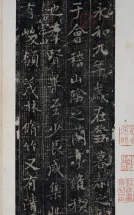 永和九年歲在癸丑暮春之
于會稽山陰之蘭亭脩稧
也羣賢畢至少長咸集此
有峻領茂林脩竹又有清